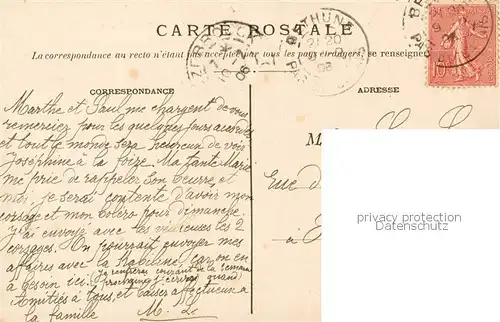 CARTE POSTALE
La correspondance au recto n'étant pas acceptée par tous les pays étrangers, se renseigner
CORRESPONDANCE
ADRESSE
Marthe et Paul me chargent de vous
remerciez pour les quelques jours accordés
et tout le monde sera heureux de voir
Joséphine à la foire. Ma tante Marie
me prie de rappeler son beurre, et
moi, je serai contente d'avoir mon
corsage et mon boléro pour dimanche.
J'ai envoyé avec les vidieuses les 2
corsages. On pourrait envoyer mes
affaires avec la car on en
a besoin ici. (Je rentrerai courant de la semaine
prochaine j'écrirai quand)
Amitiés à tous, et baisers affectueux à
la famille M. L.
M
Rue d
à
BETHUNE
06
10
privacy protection
Datenschutz